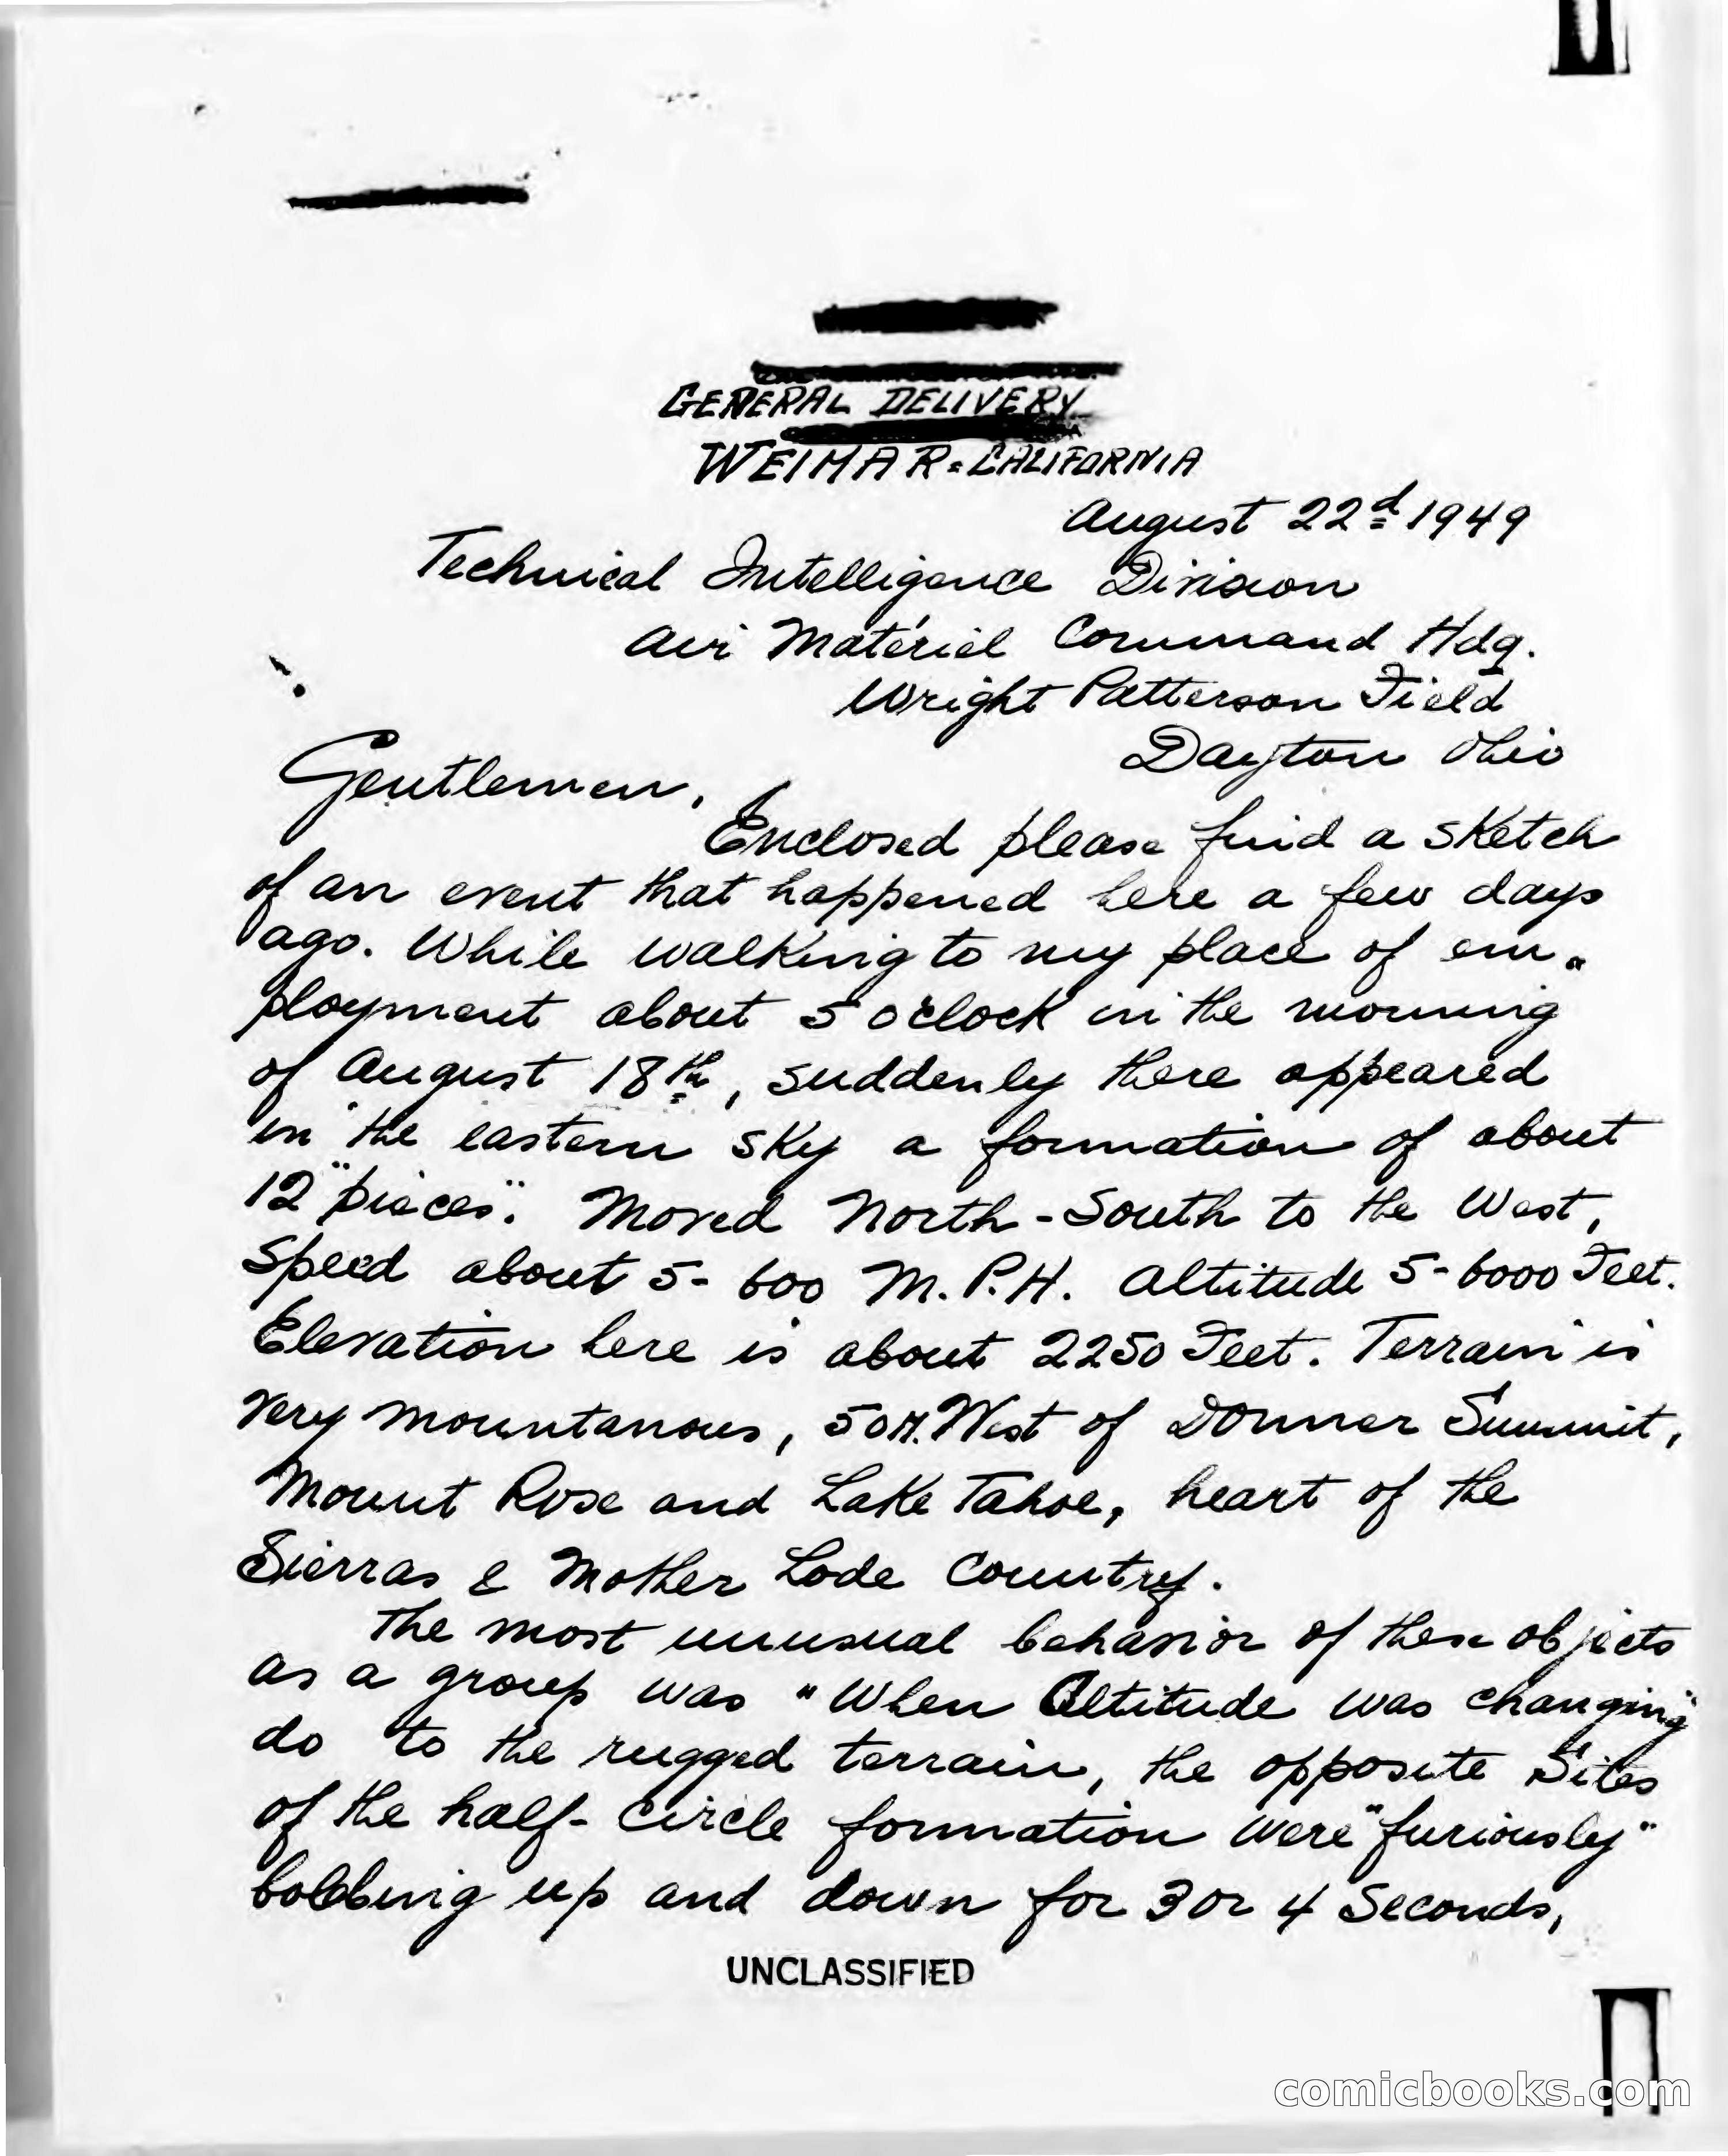 GENERAL DELIVERY
WEIMAR = CALIFORNIA
August 22d 1949
Technical Intelligence Division
Air Matériel Command Hdq.
Wright Patterson Field
Dayton Ohio
Gentlemen,
Enclosed please find a sketch
of an event that happened here a few days
ago. While walking to my place of em=
ployment about 5 o'clock in the morning
of August 18th, suddenly there appeared
in the eastern sky a formation of about
12 "pieces". Moved North-South to the West,
Speed about 5-600 M.P.H. Altitude 5-6000 Feet.
Elevation here is about 2250 Feet. Terrain is
very mountanous, 50 M. West of Donner Summit,
Mount Rose and Lake Tahoe, heart of the
Sierras & Mother Lode Country.
The most unusual behavior of these objects
as a group was "When Altitude was changing"
do to the rugged terrain, the opposite Sites
of the half-circle formation were "furiously"
bobbing up and down for 3 or 4 Seconds,
UNCLASSIFIED
comicbooks.com